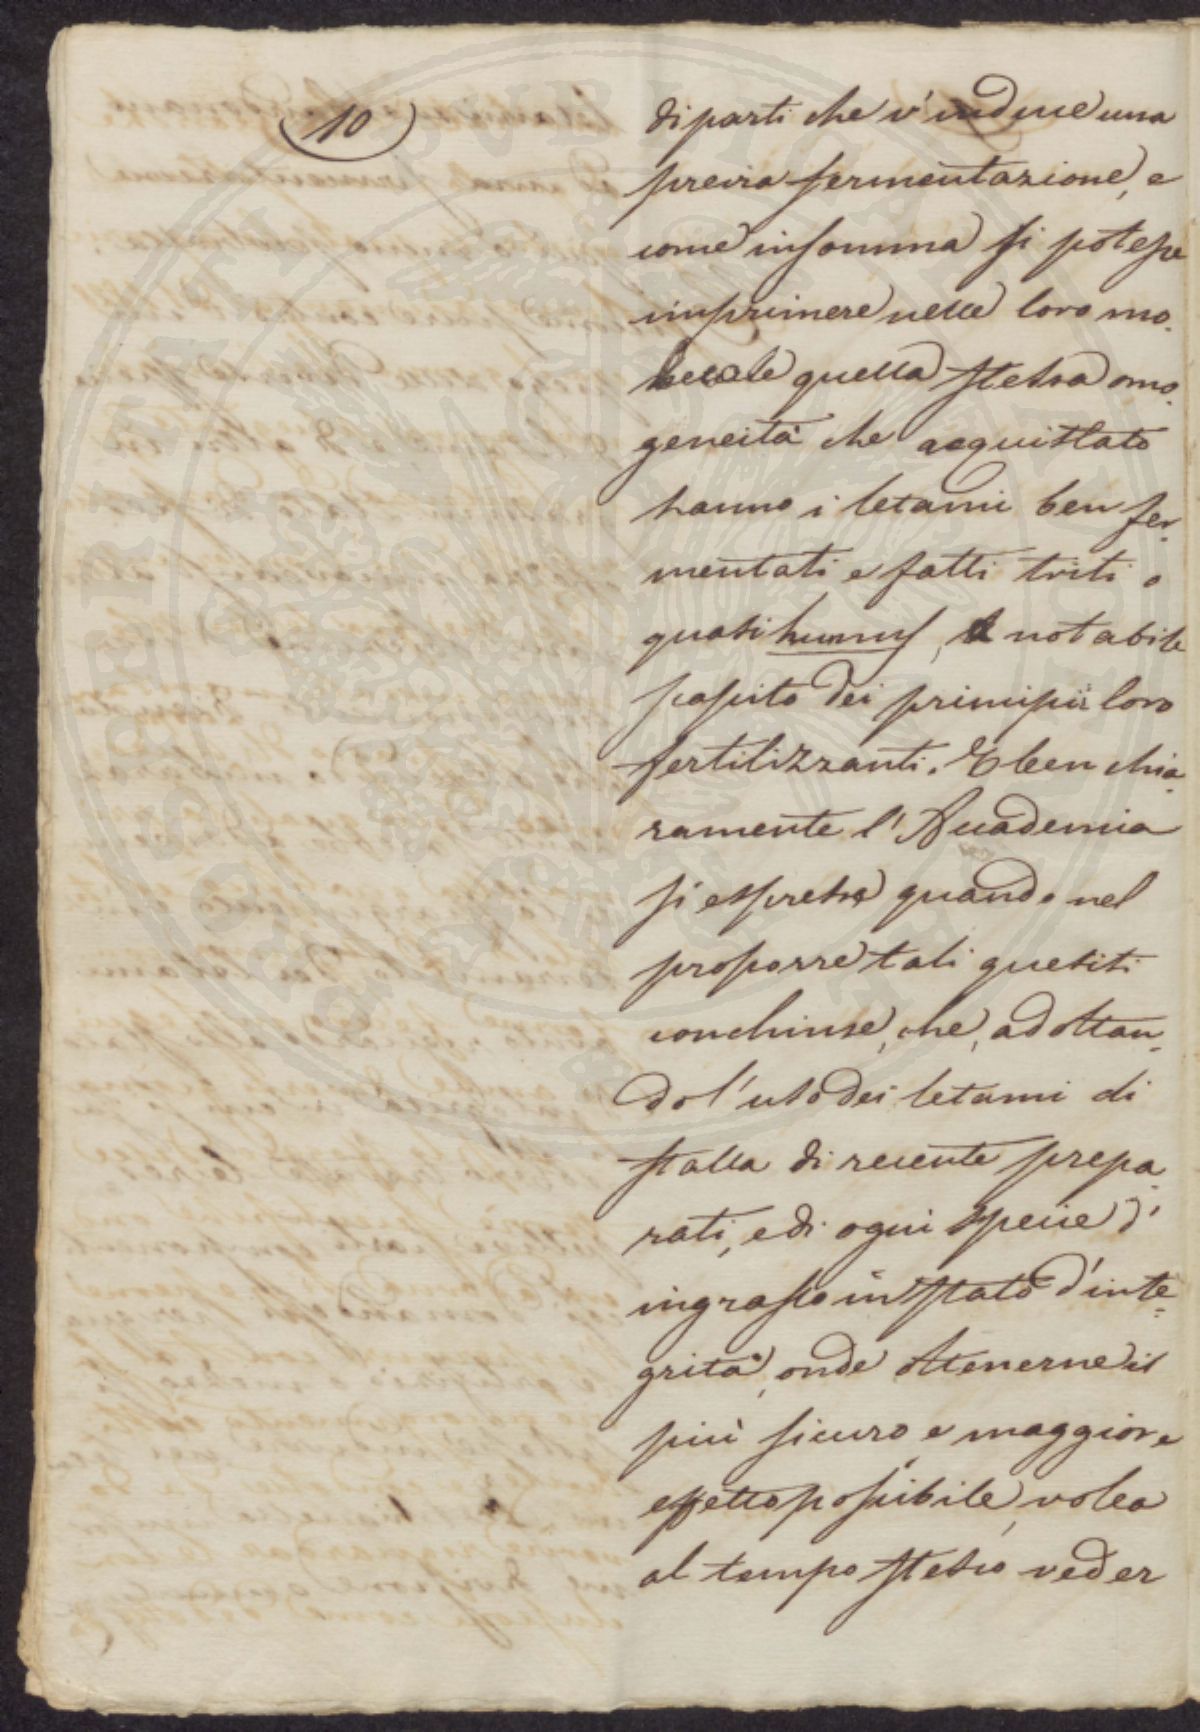 10
di parti che v'induce una
previa fermentazione, e
come insomma si potesse
imprimere nelle loro mo-
lecole quella stessa omo-
geneità che acquistato
hanno i letami ben fer-
mentati e fatti triti o
quasi humus, e notabile
scapito dei principii loro
fertilizzanti. E ben chia-
ramente l'Accademia
si espresse quando nel
proporre tali quesiti
conchiuse, che, adottan-
do l'uso dei letami di
stalla di recente prepa-
rati, e di ogni specie d'
ingrasso in stato d'inte-
grità, onde ottenerne il
più sicuro e maggiore
effetto possibile, volea
al tempo stesso veder